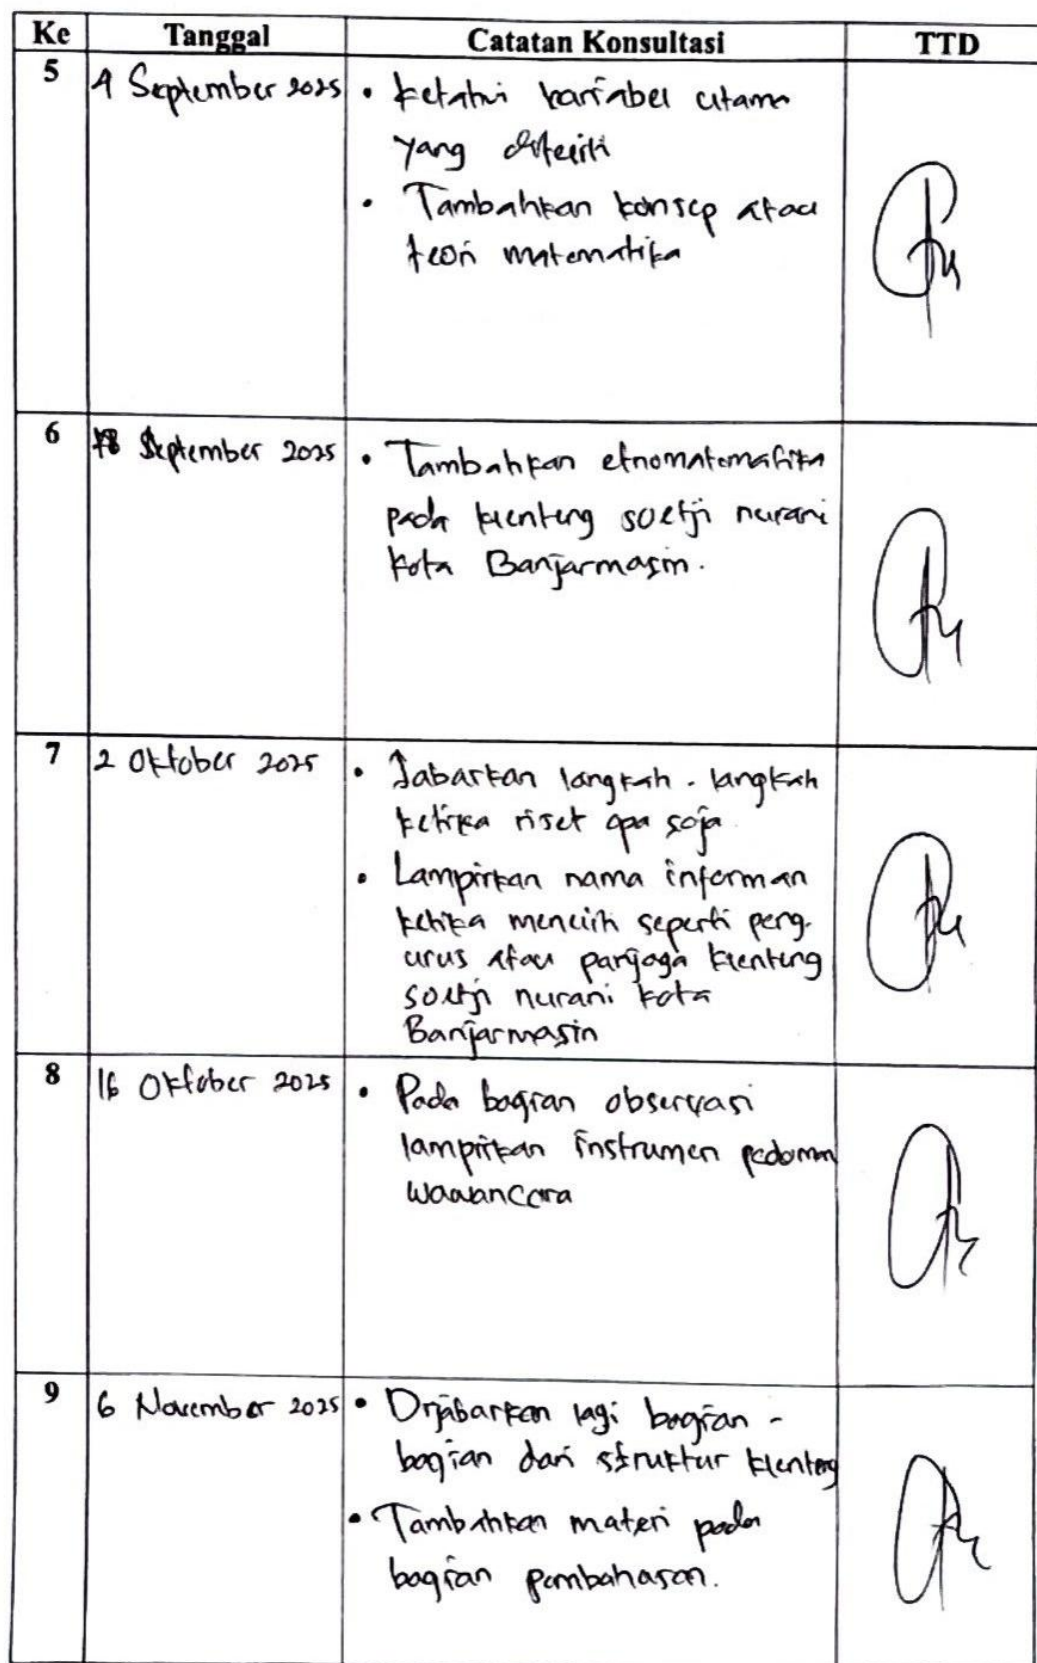 Ke Tanggal Catatan Konsultasi TTD
5 4 September 2025 • Ketahui variabel utama
yang diteliti
• Tambahkan konsep atau
teori matematika
6 18 September 2025 • Tambahkan etnomatematika
pada klenteng soetji nurani
kota Banjarmasin.
7 2 Oktober 2025 • Jabarkan langkah - langkah
ketika riset apa saja
• Lampirkan nama informan
ketika meneliti seperti peng-
urus atau panjaga klenteng
soetji nurani kota
Banjarmasin
8 16 Oktober 2025 • Pada bagian observasi
lampirkan instrumen pedoman
wawancara
9 6 November 2025 • Dijabarkan lagi bagian -
bagian dari struktur klenteng
• Tambahkan materi pada
bagian pembahasan.